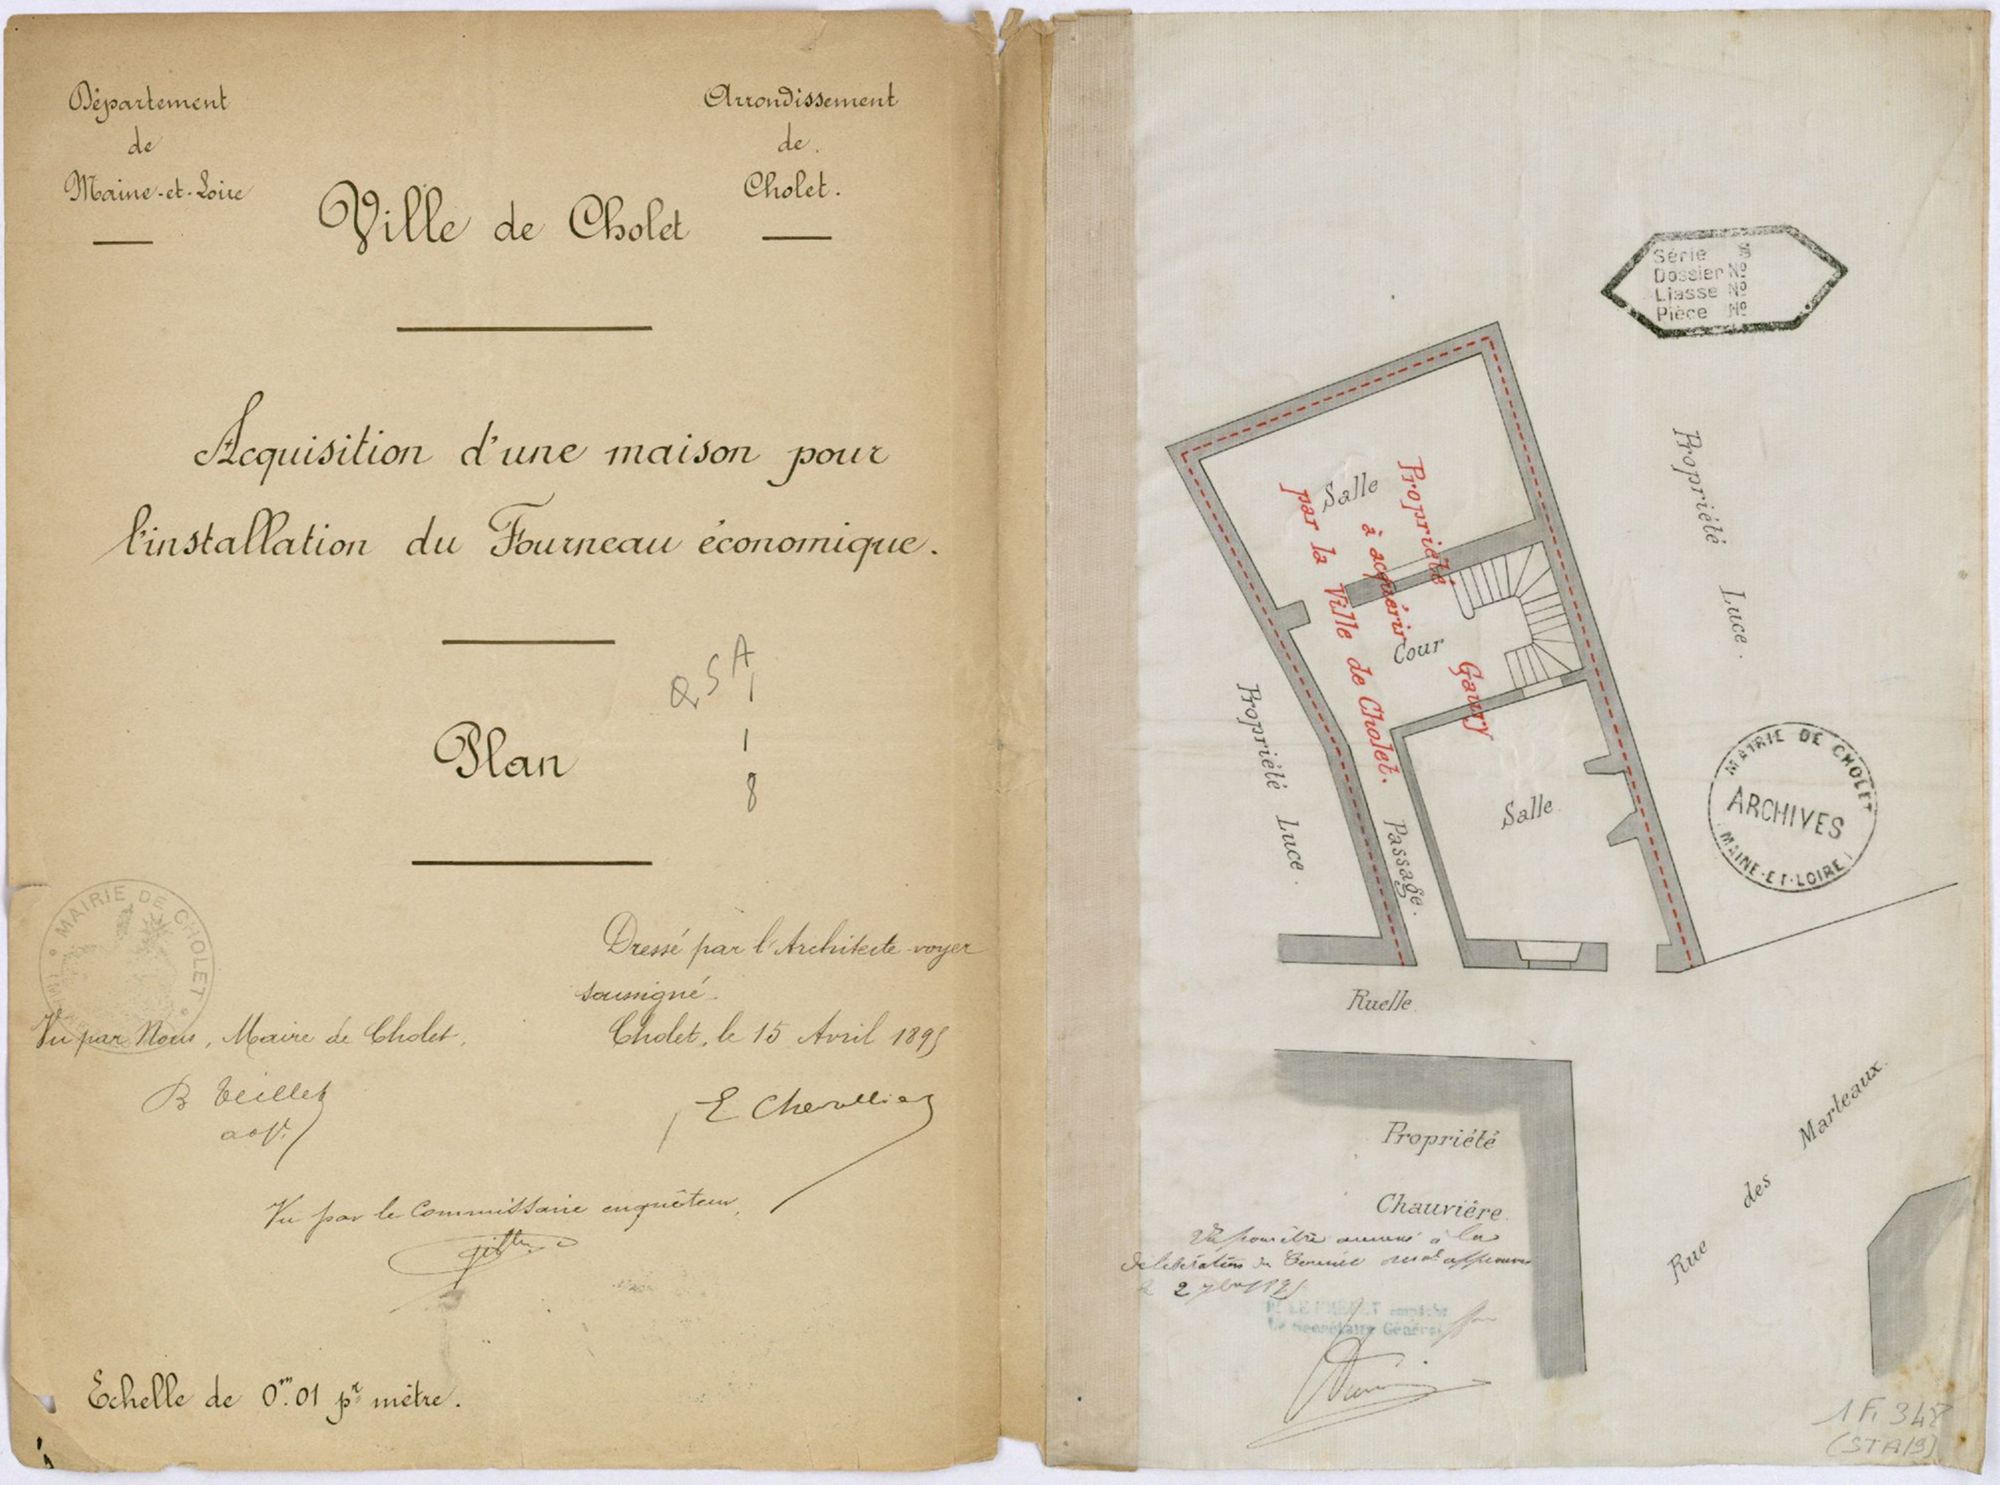 Département
de
Maine-et-Loire
Arrondissement
de.
Cholet.
Ville de Cholet
Acquisition d'une maison pour
l'installation du Fourneau économique.
Plan
QSA
1
1
8
MAIRIE DE CHOLET
Dressé par l'Architecte-voyer
soussigné.
Cholet, le 15 Avril 1895
Vu par Nous, Maire de Cholet,
E Chevallier
Vu par le Commissaire enquêteur,
Echelle de 0m.01 pr mètre.
Série
Dossier No
Liasse No
Pièce No
Propriété Luce.
Salle
Propriété Gaury
à acquérir
par la Ville de Cholet.
Cour
Propriété Luce.
Passage.
Salle
MAIRIE DE CHOLET
ARCHIVES
MAINE-ET-LOIRE
Ruelle
Propriété
Chauvière.
Rue des Marteaux.
Vu pour être annexé à la
délibération du
le 2 7bre 1895
Le Secrétaire Général
1 Fi 348
(STA/9)